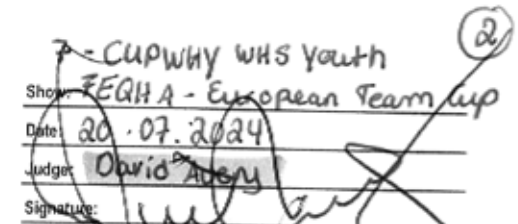 2
7 - CUPWHY WHS Youth
Show: FEQHA - European Team cup
Date: 20.07.2024
Judge: David Avery
Signature: